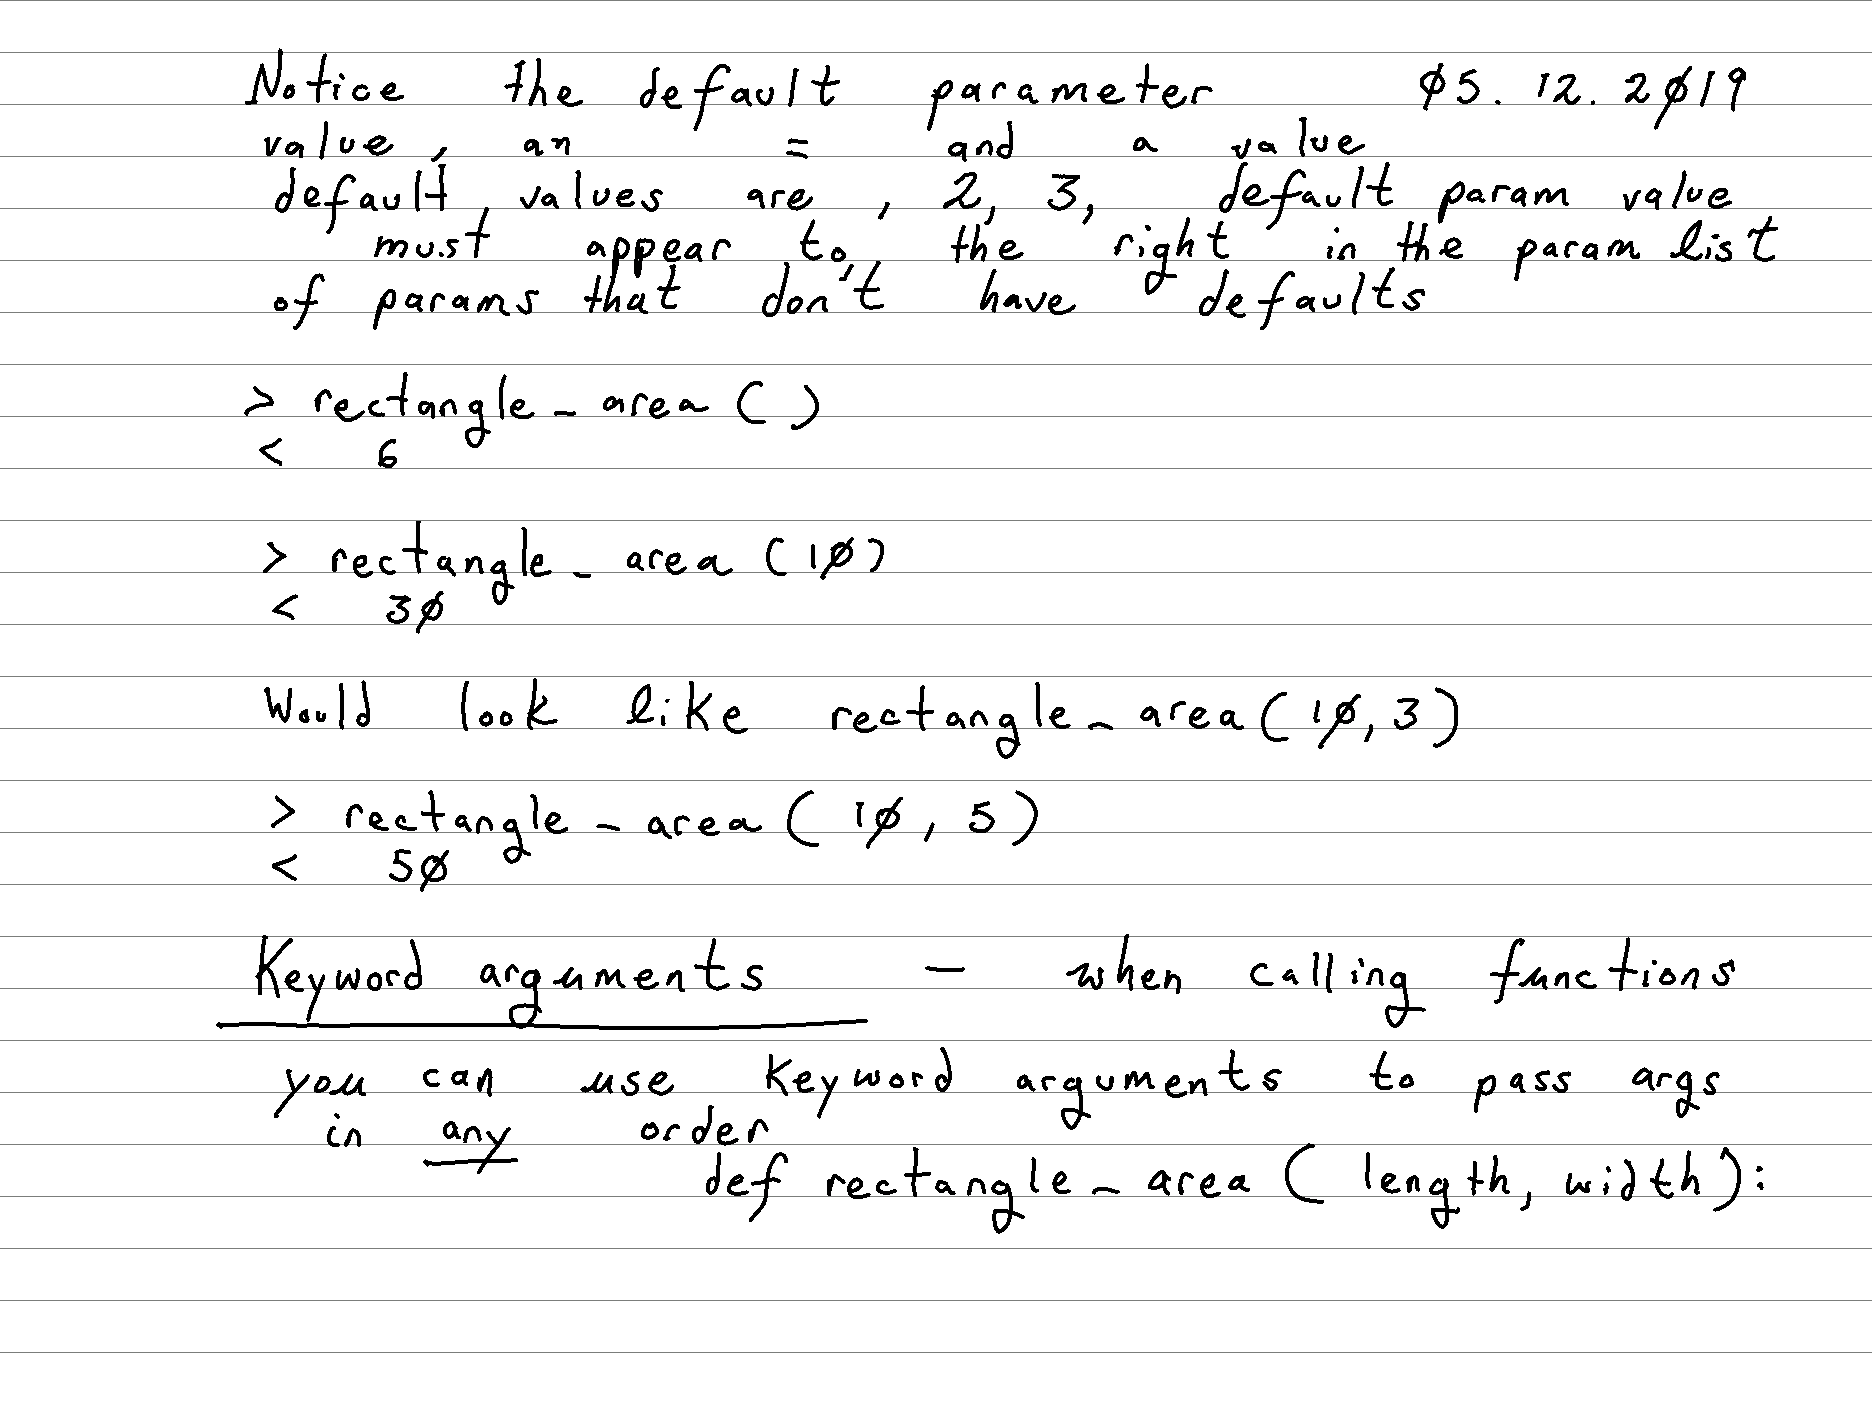 Notice the default parameter 05.12.2019
value, an = and a value
default values are, 2, 3, default param value
must appear to the right in the param list
of params that don't have defaults
> rectangle_area ( )
< 6
> rectangle_area (10)
< 30
Would look like rectangle_area (10, 3)
> rectangle_area ( 10, 5 )
< 50
Keyword arguments - when calling functions
you can use keyword arguments to pass args
in any order
def rectangle_area ( length, width ):